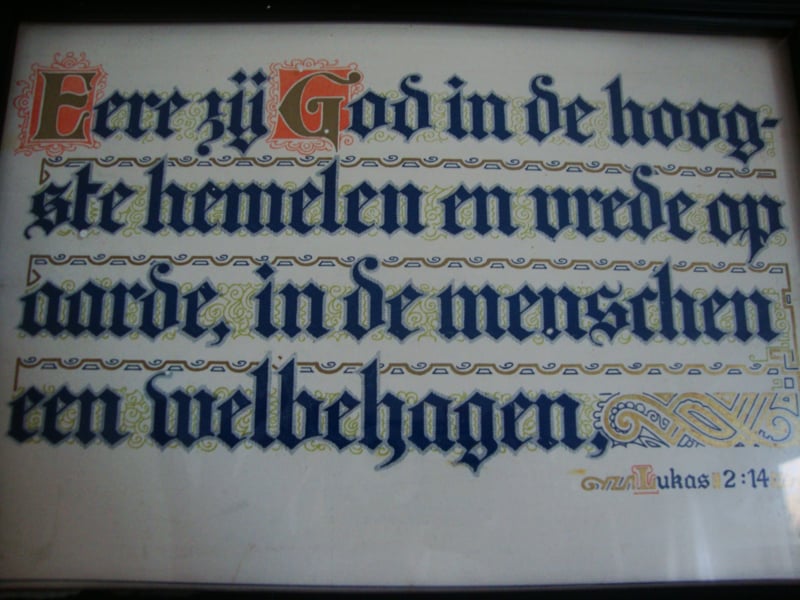 Eere zij God in de hoog-
ste hemelen en vrede op
aarde, in de menschen
een welbehagen,
Lukas 2:14